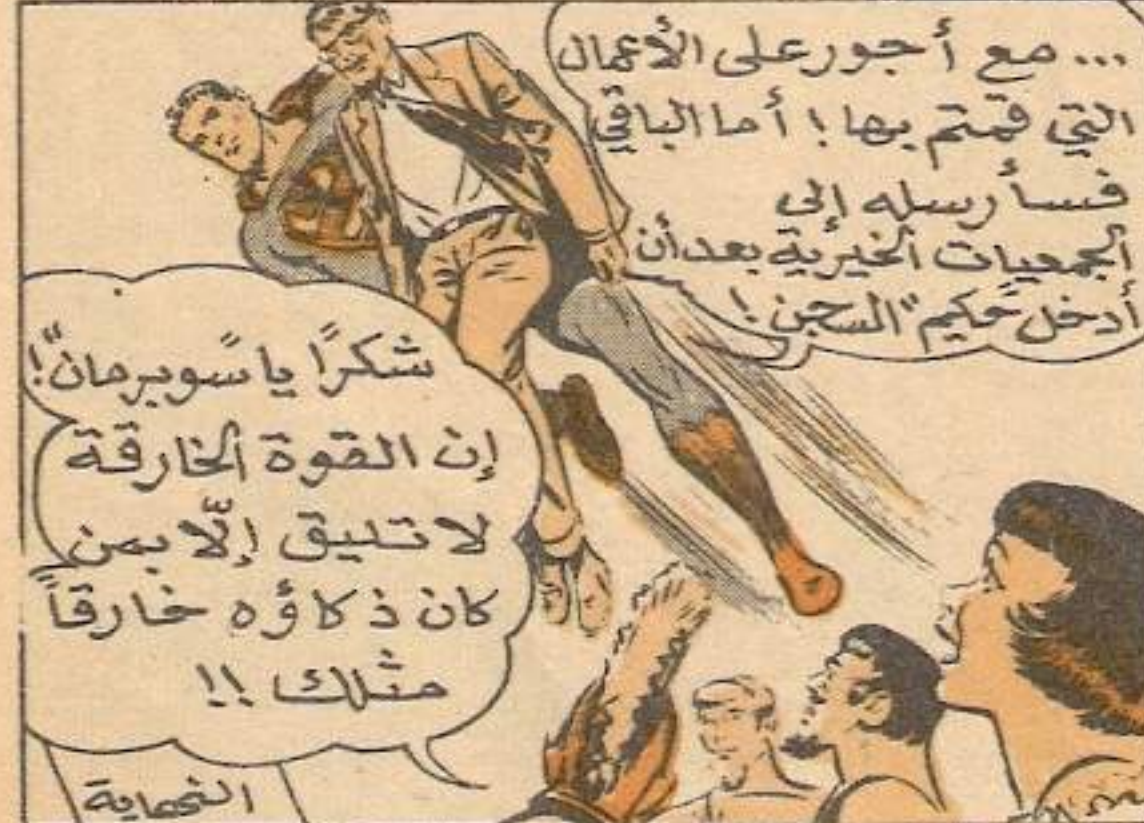 ... مع أجور على الأعمال
التي قمتم بها ! أما الباقي
فسأرسله إلى
الجمعيات الخيرية بعد أن
أدخل "حكيم" السجن !
شكرًا يا "سوبرمان"!
إن القوة الخارقة
لا تليق إلّا بمن
كان ذكاؤه خارقاً
مثلك !!
النهاية